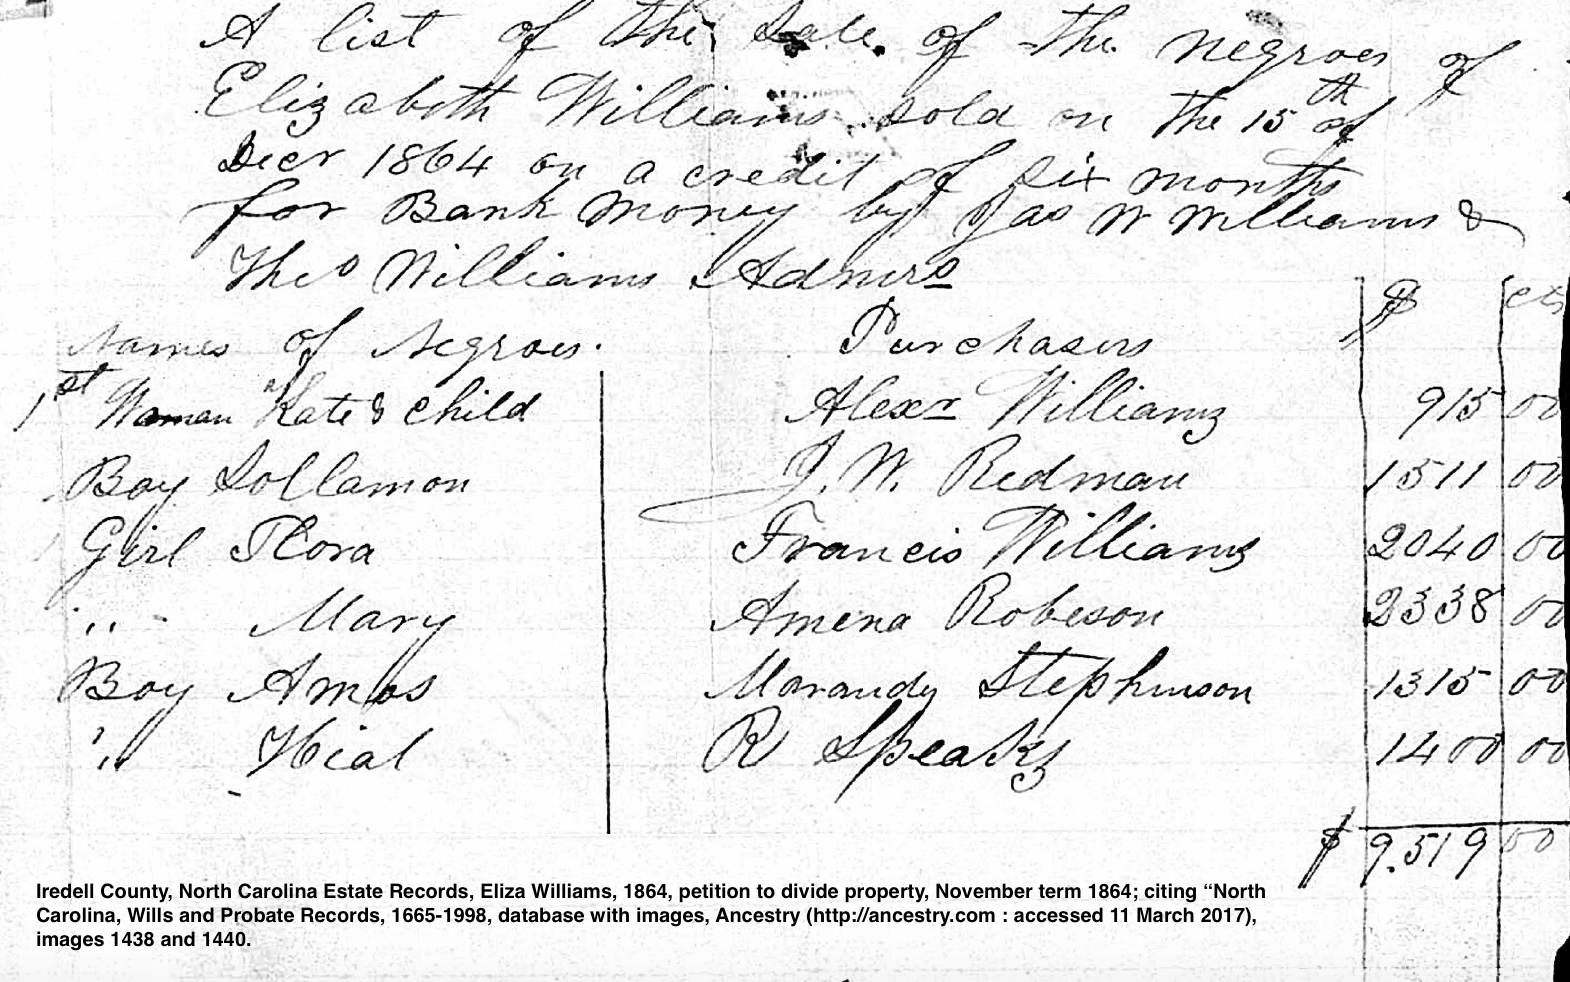 A list of the Sale of the Negroes of
Elizabeth Williams sold on the 15th of
Decr 1864 on a credit of six months
for Bank Money by Jas W Williams &
Theo Williams Admrs
$ cts
Names of Negroes. Purchasers
1st Woman Kate & child Alexr Williams 915 00
Boy Sollamon J. W. Redman 1511 00
Girl Flora Francis Williams 2040 00
" Mary Amena Robeson 2338 00
Boy Amos Marandy Stephenson 1315 00
" Hial R Speaks 1400 00
$ 9.519 00
Iredell County, North Carolina Estate Records, Eliza Williams, 1864, petition to divide property, November term 1864; citing “North
Carolina, Wills and Probate Records, 1665-1998, database with images, Ancestry (http://ancestry.com : accessed 11 March 2017),
images 1438 and 1440.